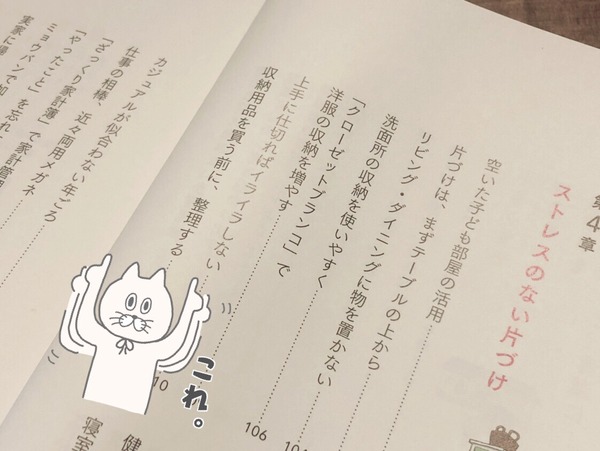 第4章
ストレスのない片づけ
空いた子ども部屋の活用
片づけは、まずテーブルの上から
リビング・ダイニングに物を置かない
洗面所の収納を使いやすく
「クローゼットブランコ」で
洋服の収納を増やす
106
上手に仕切ればイライラしない
収納用品を買う前に、整理する
カジュアルが似合わない年ごろ
仕事の相棒、近々両用メガネ
「ざっくり家計簿」で家計管理
「やったこと」を忘れ
ミョウバンで加
実家に帰
健
寝室
これ。